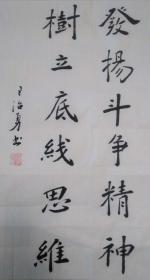 發揚斗争精神
樹立底线思維
王治勇书